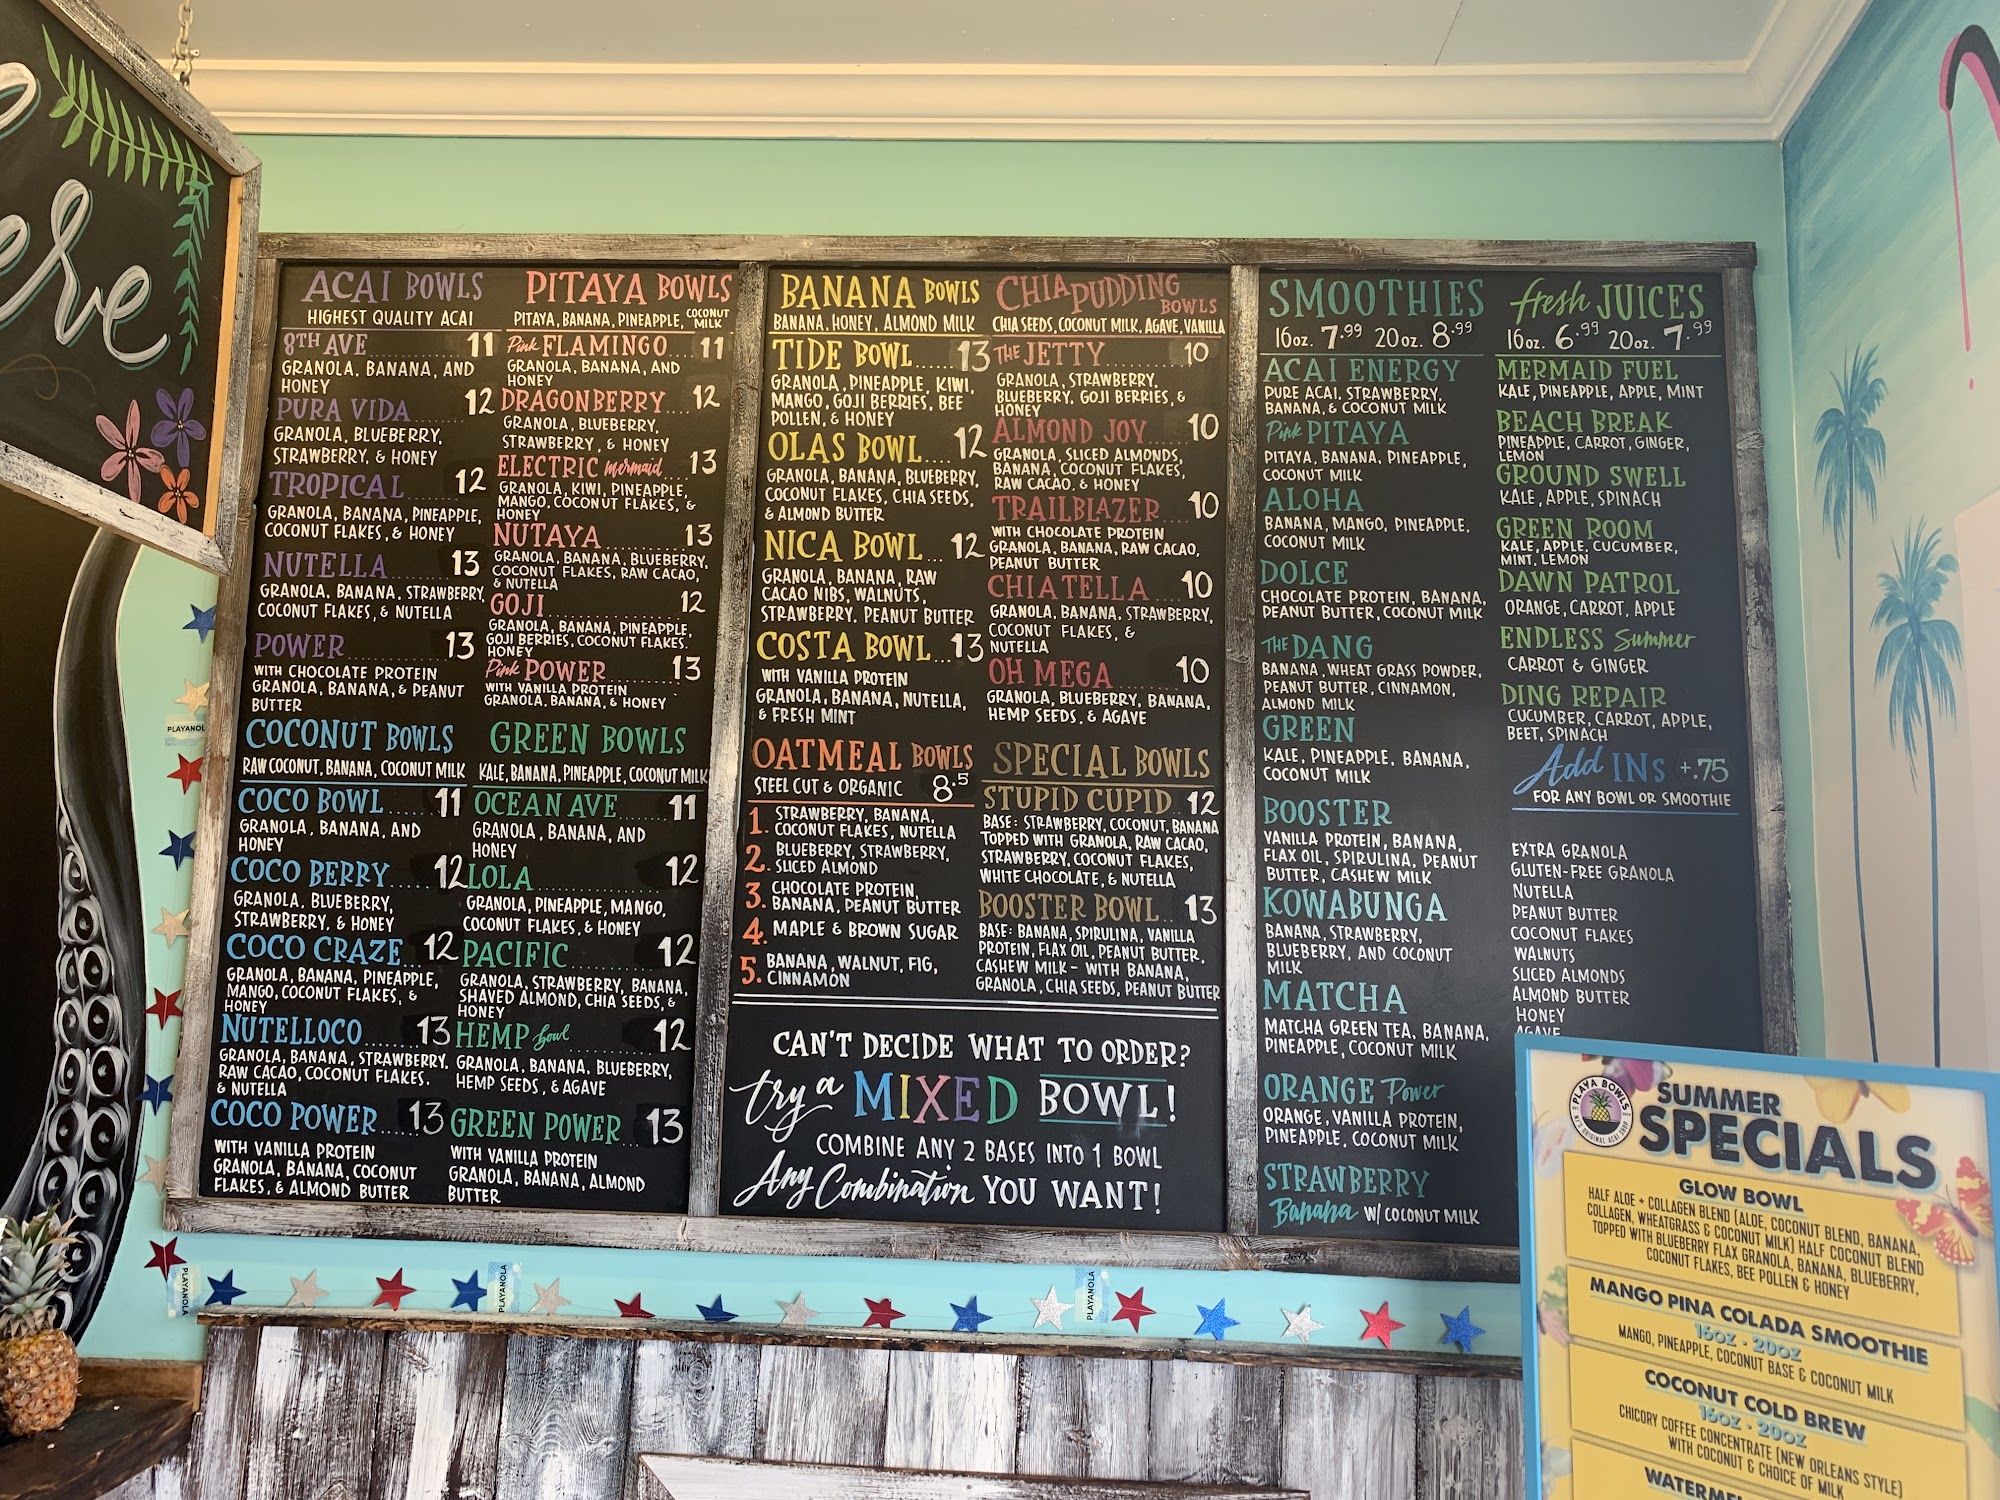 ere
ACAI BOWLS
HIGHEST QUALITY ACAI
8TH AVE 11
GRANOLA, BANANA, AND
HONEY
PURA VIDA 12
GRANOLA, BLUEBERRY,
STRAWBERRY, & HONEY
TROPICAL 12
GRANOLA, BANANA, PINEAPPLE,
COCONUT FLAKES, & HONEY
NUTELLA 13
GRANOLA, BANANA, STRAWBERRY,
COCONUT FLAKES, & NUTELLA
POWER 13
WITH CHOCOLATE PROTEIN
GRANOLA, BANANA, & PEANUT
BUTTER
COCONUT BOWLS
RAW COCONUT, BANANA, COCONUT MILK
COCO BOWL 11
GRANOLA, BANANA, AND
HONEY
COCO BERRY 12
GRANOLA, BLUEBERRY,
STRAWBERRY, & HONEY
COCO CRAZE 12
GRANOLA, BANANA, PINEAPPLE,
MANGO, COCONUT FLAKES, &
HONEY
NUTELLOCO 13
GRANOLA, BANANA, STRAWBERRY,
RAW CACAO, COCONUT FLAKES,
& NUTELLA
COCO POWER 13
WITH VANILLA PROTEIN
GRANOLA, BANANA, COCONUT
FLAKES, & ALMOND BUTTER
PITAYA BOWLS
PITAYA, BANANA, PINEAPPLE, COCONUT MILK
Pink FLAMINGO 11
GRANOLA, BANANA, AND
HONEY
DRAGONBERRY 12
GRANOLA, BLUEBERRY,
STRAWBERRY, & HONEY
ELECTRIC mermaid 13
GRANOLA, KIWI, PINEAPPLE,
MANGO, COCONUT FLAKES, &
HONEY
NUTAYA 13
GRANOLA, BANANA, BLUEBERRY,
COCONUT FLAKES, RAW CACAO,
& NUTELLA
GOJI 12
GRANOLA, BANANA, PINEAPPLE,
GOJI BERRIES, COCONUT FLAKES,
HONEY
Pink POWER 13
WITH VANILLA PROTEIN
GRANOLA, BANANA, & HONEY
GREEN BOWLS
KALE, BANANA, PINEAPPLE, COCONUT MILK
OCEAN AVE 11
GRANOLA, BANANA, AND
HONEY
LOLA 12
GRANOLA, PINEAPPLE, MANGO,
COCONUT FLAKES, & HONEY
PACIFIC 12
GRANOLA, STRAWBERRY, BANANA,
SHAVED ALMOND, CHIA SEEDS, &
HONEY
HEMP bowl 12
GRANOLA, BANANA, BLUEBERRY,
HEMP SEEDS, & AGAVE
GREEN POWER 13
WITH VANILLA PROTEIN
GRANOLA, BANANA, ALMOND
BUTTER
BANANA BOWLS
BANANA, HONEY, ALMOND MILK
TIDE BOWL 13
GRANOLA, PINEAPPLE, KIWI,
MANGO, GOJI BERRIES, BEE
POLLEN, & HONEY
OLAS BOWL 12
GRANOLA, BANANA, BLUEBERRY,
COCONUT FLAKES, CHIA SEEDS,
& ALMOND BUTTER
NICA BOWL 12
GRANOLA, BANANA, RAW
CACAO NIBS, WALNUTS,
STRAWBERRY, PEANUT BUTTER
COSTA BOWL 13
WITH VANILLA PROTEIN
GRANOLA, BANANA, NUTELLA,
& FRESH MINT
OATMEAL BOWLS
STEEL CUT & ORGANIC 8.5
1. STRAWBERRY, BANANA,
COCONUT FLAKES, NUTELLA
2. BLUEBERRY, STRAWBERRY,
SLICED ALMOND
3. CHOCOLATE PROTEIN,
BANANA, PEANUT BUTTER
4. MAPLE & BROWN SUGAR
5. BANANA, WALNUT, FIG,
CINNAMON
CHIA PUDDING BOWLS
CHIA SEEDS, COCONUT MILK, AGAVE, VANILLA
THE JETTY 10
GRANOLA, STRAWBERRY,
BLUEBERRY, GOJI BERRIES, &
HONEY
ALMOND JOY 10
GRANOLA, SLICED ALMONDS,
BANANA, COCONUT FLAKES,
RAW CACAO, & HONEY
TRAILBLAZER 10
WITH CHOCOLATE PROTEIN
GRANOLA, BANANA, RAW CACAO,
PEANUT BUTTER
CHIATELLA 10
GRANOLA, BANANA, STRAWBERRY,
COCONUT FLAKES, &
NUTELLA
OH MEGA 10
GRANOLA, BLUEBERRY, BANANA,
HEMP SEEDS, & AGAVE
SPECIAL BOWLS
STUPID CUPID 12
BASE: STRAWBERRY, COCONUT, BANANA
TOPPED WITH GRANOLA, RAW CACAO,
STRAWBERRY, COCONUT FLAKES,
WHITE CHOCOLATE, & NUTELLA
BOOSTER BOWL 13
BASE: BANANA, SPIRULINA, VANILLA
PROTEIN, FLAX OIL, PEANUT BUTTER,
CASHEW MILK - WITH BANANA,
GRANOLA, CHIA SEEDS, PEANUT BUTTER
CAN'T DECIDE WHAT TO ORDER?
try a MIXED BOWL!
COMBINE ANY 2 BASES INTO 1 BOWL
Any Combination YOU WANT!
SMOOTHIES
16oz. 7.99 20oz. 8.99
ACAI ENERGY
PURE ACAI, STRAWBERRY,
BANANA, & COCONUT MILK
Pink PITAYA
PITAYA, BANANA, PINEAPPLE,
COCONUT MILK
ALOHA
BANANA, MANGO, PINEAPPLE,
COCONUT MILK
DOLCE
CHOCOLATE PROTEIN, BANANA,
PEANUT BUTTER, COCONUT MILK
THE DANG
BANANA, WHEAT GRASS POWDER,
PEANUT BUTTER, CINNAMON,
ALMOND MILK
GREEN
KALE, PINEAPPLE, BANANA,
COCONUT MILK
BOOSTER
VANILLA PROTEIN, BANANA,
FLAX OIL, SPIRULINA, PEANUT
BUTTER, CASHEW MILK
KOWABUNGA
BANANA, STRAWBERRY,
BLUEBERRY, AND COCONUT
MILK
MATCHA
MATCHA GREEN TEA, BANANA,
PINEAPPLE, COCONUT MILK
ORANGE Power
ORANGE, VANILLA PROTEIN,
PINEAPPLE, COCONUT MILK
STRAWBERRY
Banana W/ COCONUT MILK
fresh JUICES
16oz. 6.99 20oz. 7.99
MERMAID FUEL
KALE, PINEAPPLE, APPLE, MINT
BEACH BREAK
PINEAPPLE, CARROT, GINGER,
LEMON
GROUND SWELL
KALE, APPLE, SPINACH
GREEN ROOM
KALE, APPLE, CUCUMBER,
MINT, LEMON
DAWN PATROL
ORANGE, CARROT, APPLE
ENDLESS Summer
CARROT & GINGER
DING REPAIR
CUCUMBER, CARROT, APPLE,
BEET, SPINACH
Add INs +.75
FOR ANY BOWL OR SMOOTHIE
EXTRA GRANOLA
GLUTEN-FREE GRANOLA
NUTELLA
PEANUT BUTTER
COCONUT FLAKES
WALNUTS
SLICED ALMONDS
ALMOND BUTTER
HONEY
AGAVE
PLAYA BOWLS
NJ'S ORIGINAL ACAI SHOP
SUMMER
SPECIALS
GLOW BOWL
HALF ALOE + COLLAGEN BLEND (ALOE, COCONUT BLEND, BANANA,
COLLAGEN, WHEATGRASS & COCONUT MILK) HALF COCONUT BLEND
TOPPED WITH BLUEBERRY FLAX GRANOLA, BANANA, BLUEBERRY,
COCONUT FLAKES, BEE POLLEN & HONEY
MANGO PINA COLADA SMOOTHIE
16OZ · 20OZ
MANGO, PINEAPPLE, COCONUT BASE & COCONUT MILK
COCONUT COLD BREW
16OZ · 20OZ
CHICORY COFFEE CONCENTRATE (NEW ORLEANS STYLE)
WITH COCONUT & CHOICE OF MILK
WATERME
PLAYANOLA
PLAYANOLA
PLAYANOLA
PLAYANOLA